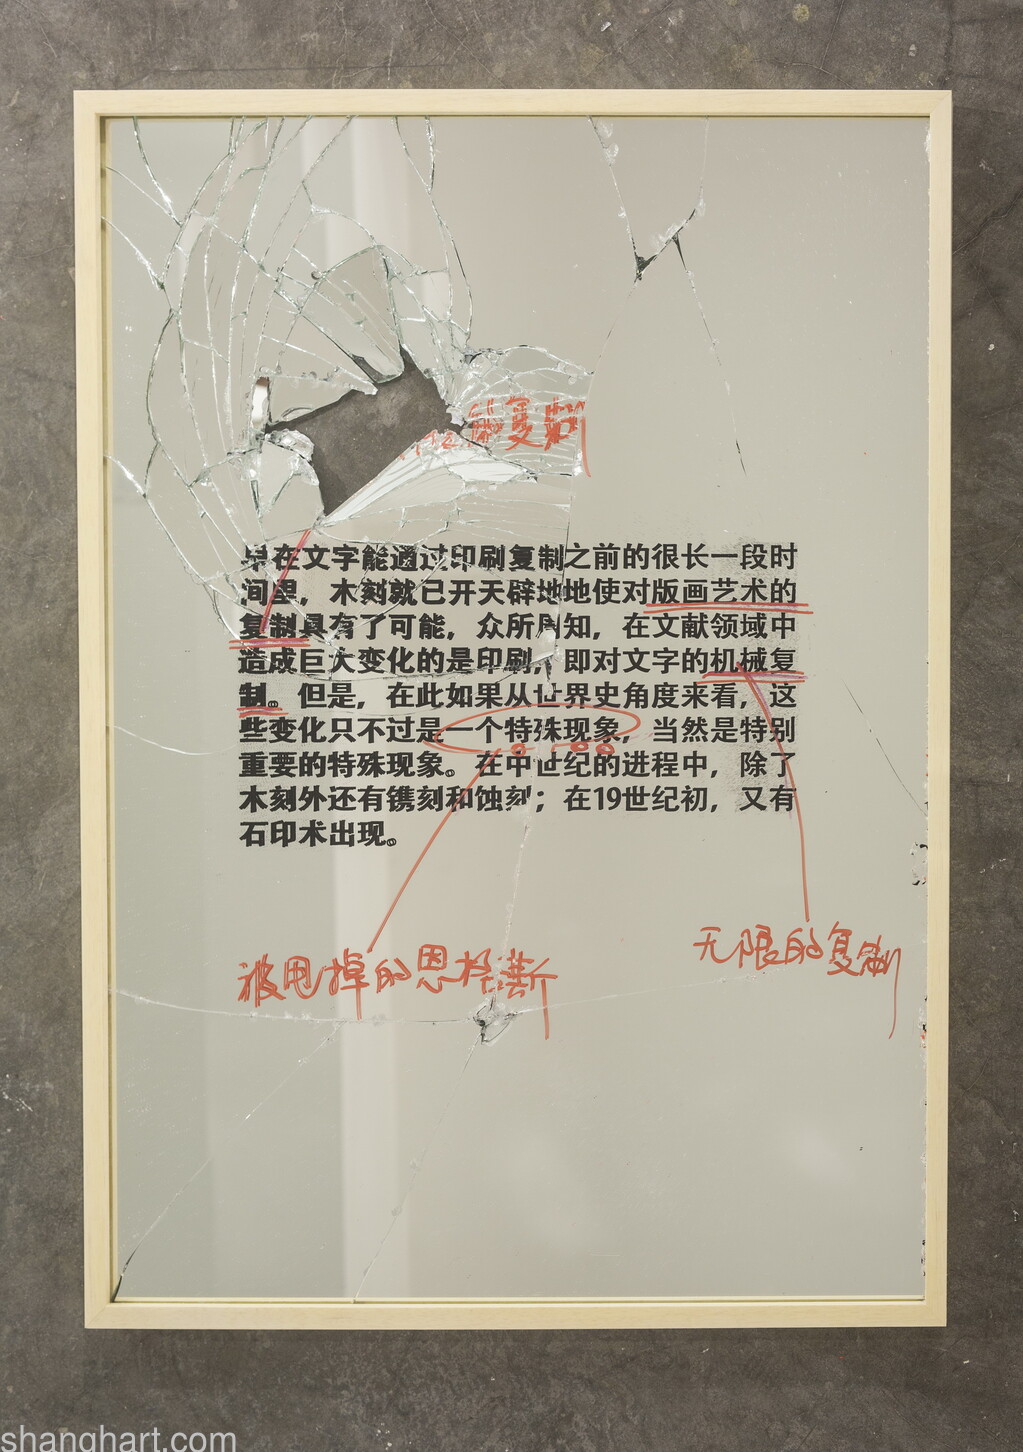 复制
早在文字能通过印刷复制之前的很长一段时
间里，木刻就已开天辟地地使对版画艺术的
复制具有了可能，众所周知，在文献领域中
造成巨大变化的是印刷，即对文字的机械复
制。但是，在此如果从世界史角度来看，这
些变化只不过是一个特殊现象，当然是特别
重要的特殊现象。在中世纪的进程中，除了
木刻外还有镌刻和蚀刻；在19世纪初，又有
石印术出现。
无限的复制
被甩掉的恩格斯
shanghart.com